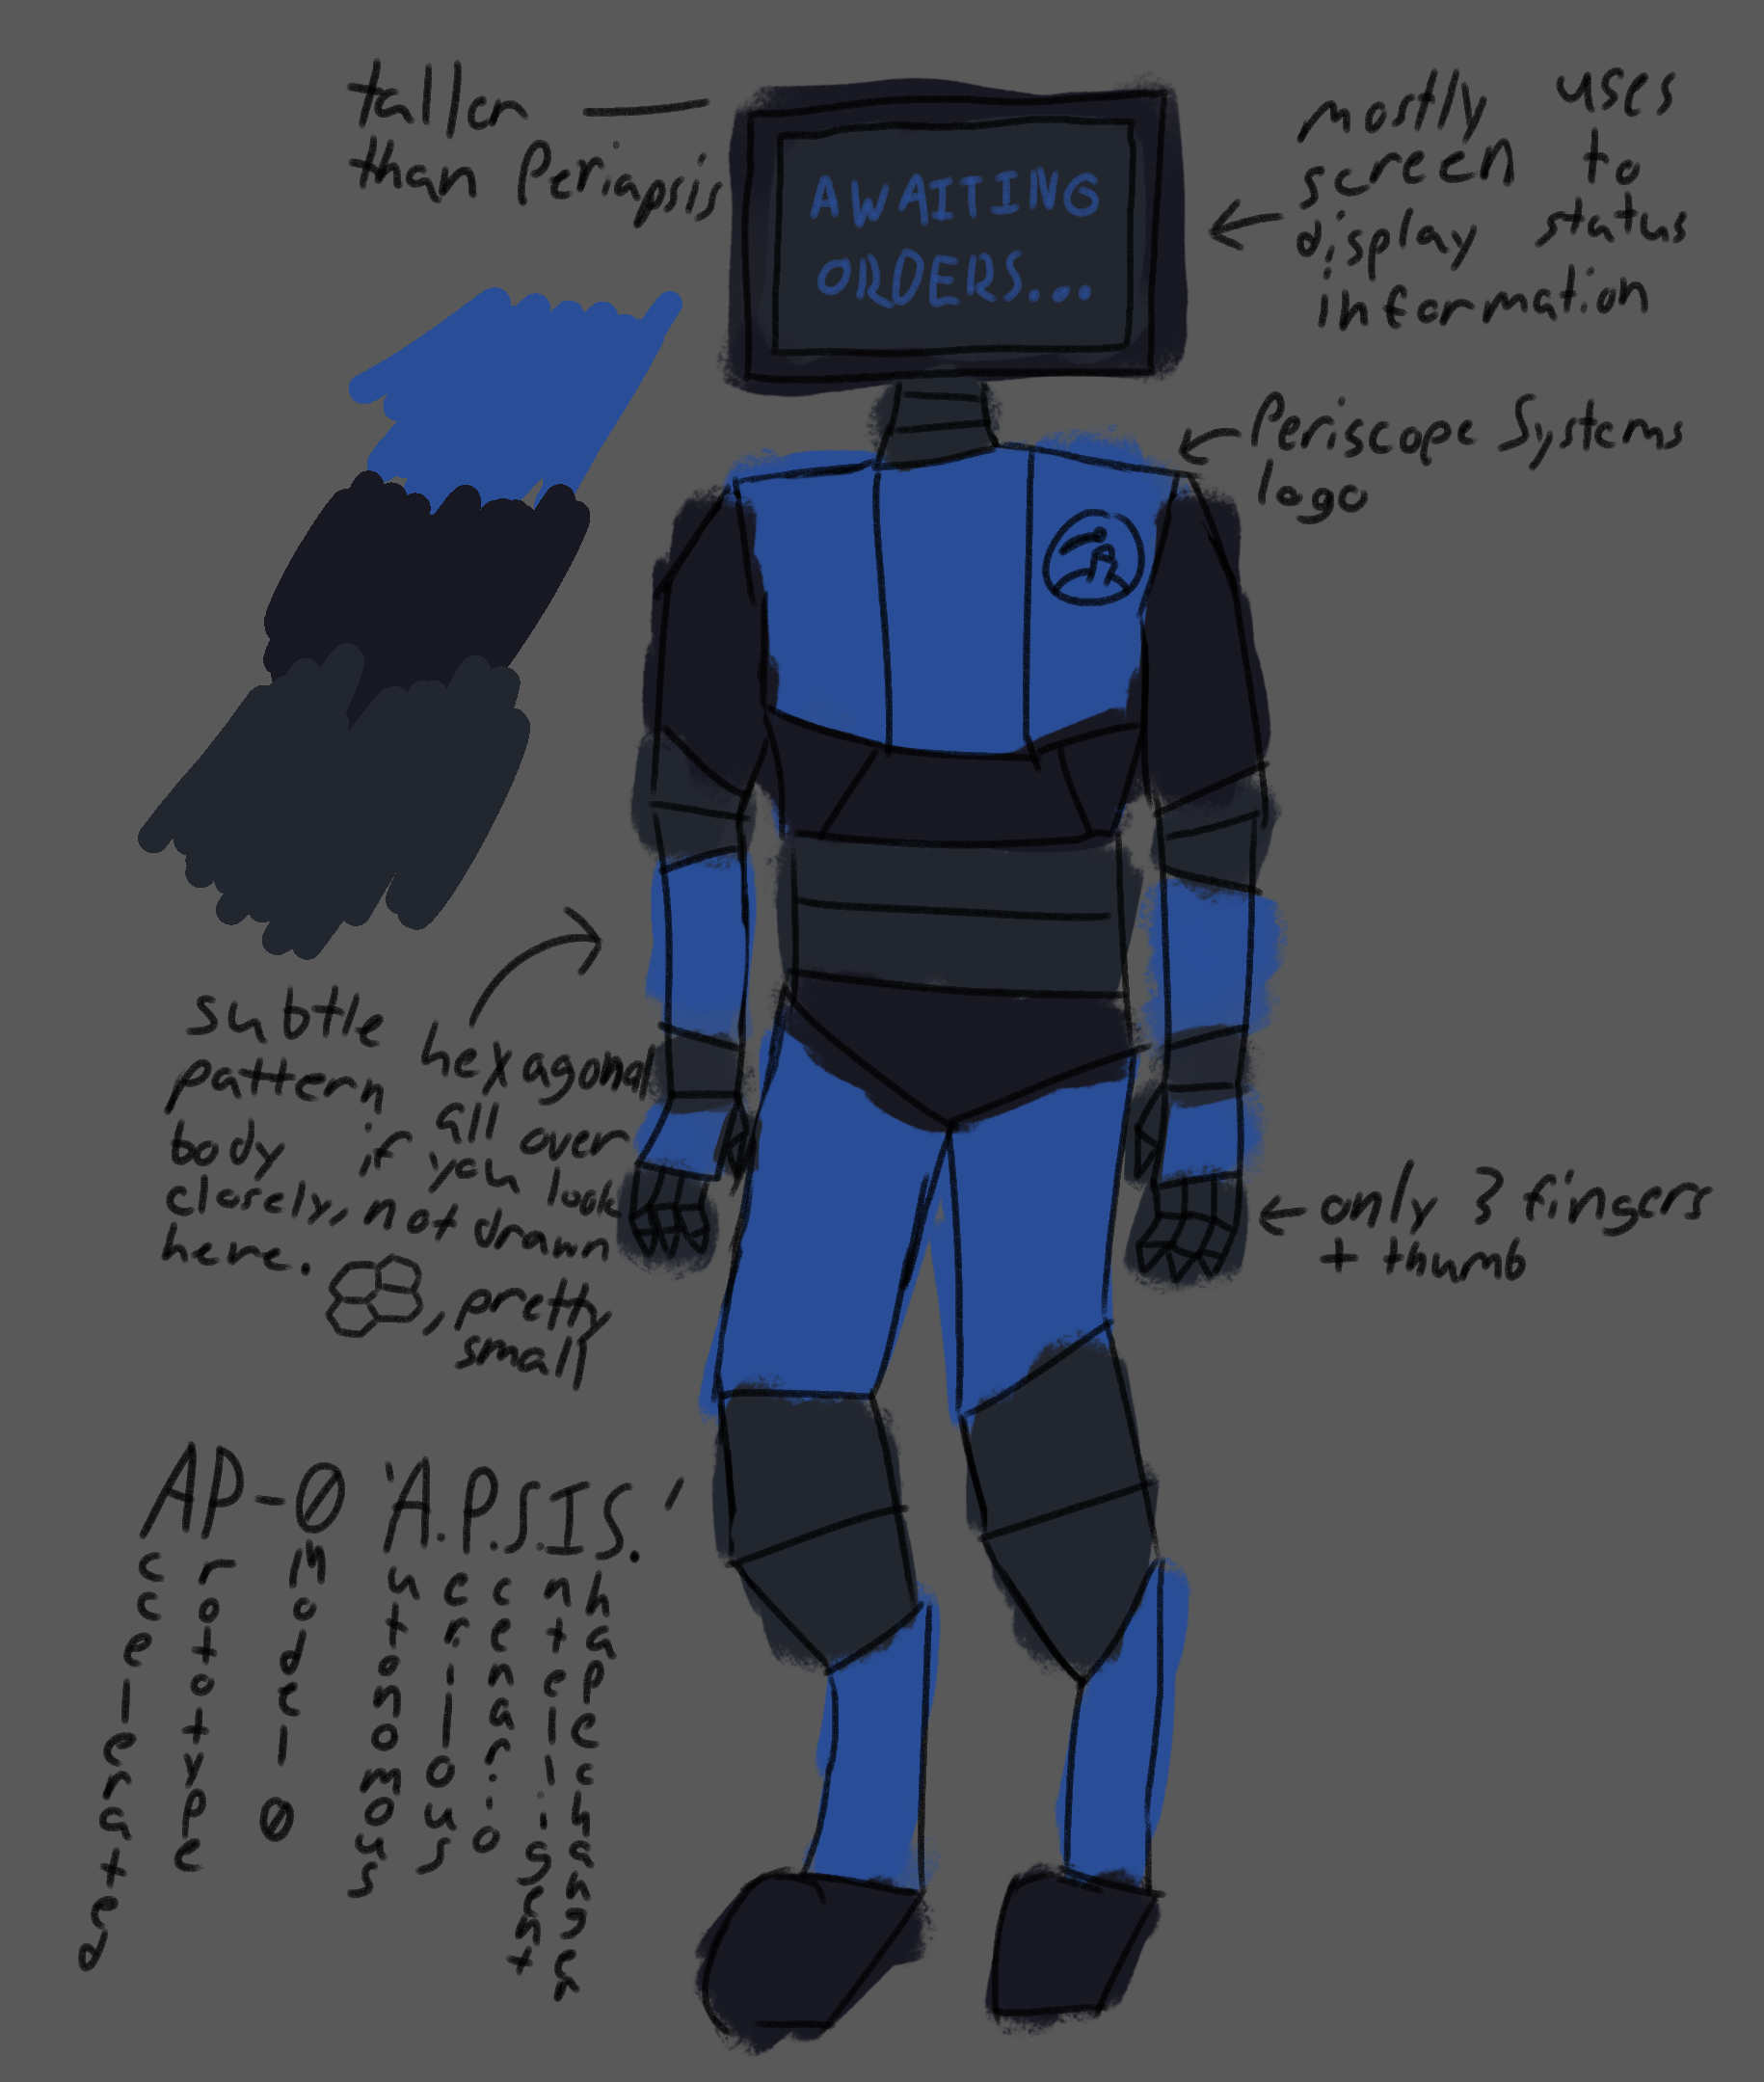 taller
than Periapsis
mostly uses
screen to
display status
information
AWAITING
ORDERS...
Periscope Systems
logo
subtle hexagonal
pattern all over
body if you look
closely, not drawn
here. , pretty
small
only 3 fingers
+ thumb
AP-0 'A.P.S.I.S.'
Accelerated
Prototype
Model 0
Autonomous
Perilous
Scenario
Intelligent
Shapechanger